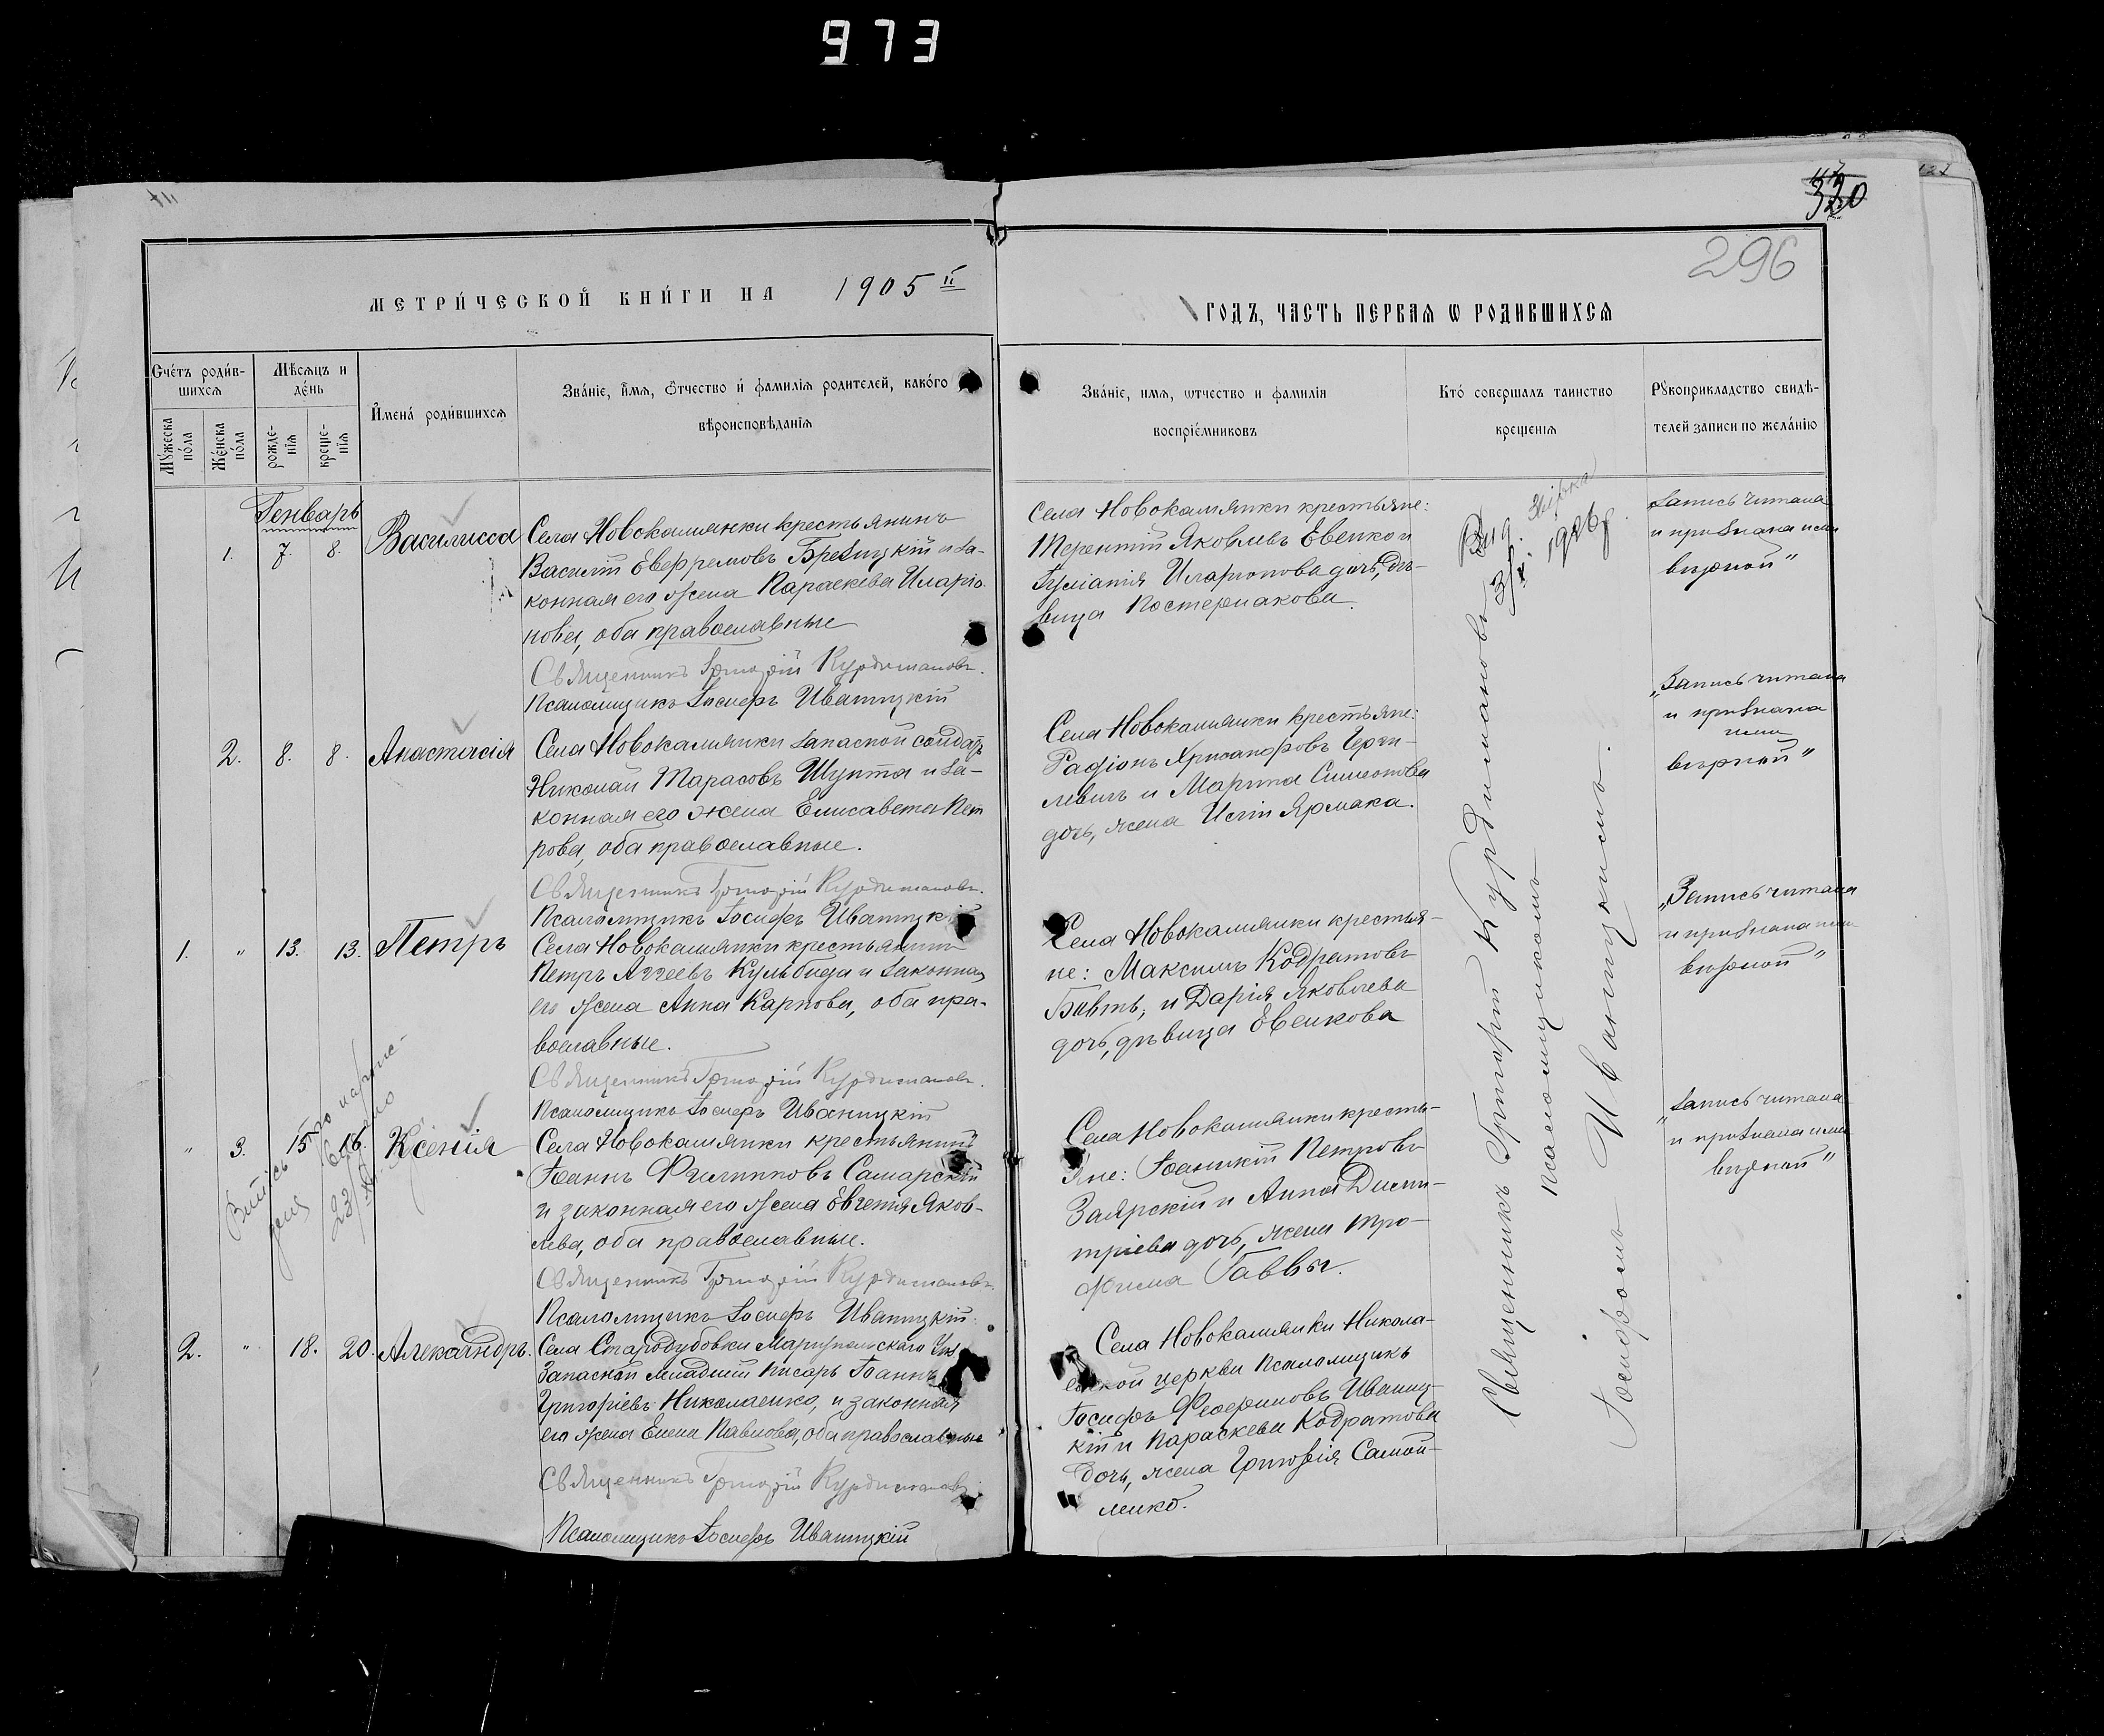 973
320
296
МЕТРИ́ЧЕСКОЙ КНИ́ГИ НА 1905 й
ГОДЪ, ЧАСТЬ ПЕРВАЯ Ѡ РОДИВШИХСЯ
Счетъ роди́в-
шихся
Мѣсяцъ и
де́нь
Мꙋжеска
по́ла
Же́нска
по́ла
рожде-
нїя
креще-
нїя
Имена́ роди́вшихся
Зва́нїе, и́мя, ѻтчество и фамилїя родителей, како́го
вѣроисповѣ́данїя
Зва́нїе, имя, ѡтчество и фамилїя
воспрїе́мниковъ
Кто́ совершалъ таинство
крещенїя
Рꙋкоприкладство свидѣ-
телей записи по жела́нїю
Генварь
1. 7. 8. Василисса
Села Новокамянки крестьянинъ
Василій Евфремовъ и за-
конная его жена Параскева Иларіо-
нова, оба православные
Священникъ Григорій Курдимановъ.
Псаломщикъ Іосифъ Иваницкій
Села Новокамянки крестьяне:
Терентій Яковлевъ Евенко и
Иларіонова дочь, дѣ-
вица
Запись читана
и признана нами
вѣрной"
2. 8. 8. Анастасія
Села Новокамянки запасной солдатъ
Николай Тарасовъ Шупта и за-
конная его жена Елисавета Пет
рова, оба православные.
Священникъ Григорій Курдимановъ.
Псаломщикъ Іосифъ Иваницкій
Села Новокамянки крестьяне:
Радіонъ Хрисанфовъ
и Марина Симеонова
дочь, жена Ярмака.
„Запись читана
и признана
нами
вѣрной"
1. " 13. 13. Петръ
Села Новокамянки крестьянинъ
Петръ Аггеевъ Кульбида и законная
его жена Анна Карпова, оба пра-
вославные.
Священникъ Григорій Курдимановъ.
Псаломщикъ Іосифъ Иваницкій
Села Новокамянки крестья-
не: Максимъ Кодратовъ
и Дарія Яковлева
дочь, дѣвица Евенкова
„Запись читана
и признана нами
вѣрной"
" 3. 15 16. Ксенія
Села Новокамянки крестьянинъ
Іоаннъ Филипповъ Самарскій
и законная его жена Евгенія Яков-
лева, оба православные.
Священникъ Григорій Курдимановъ.
Псаломщикъ Іосифъ Иваницкій.
Села Новокамянки кресть-
яне: Іоаникій Петровъ
Заярскій и Анна Дими-
тріева дочь, жена Тро-
фима Гаввы.
„Запись читана
и признана нами
вѣрной"
2. " 18. 20. Александръ.
Села Стародубовки Маріупольскаго
Запасной младшій писарь Іоаннъ
Григоріевъ Николаенко, и законная
его жена Елена Павлова, оба православные
Священникъ Григорій Курдимановъ
Псаломщикъ Іосифъ Иваницкій
Села Новокамянки Никола-
евской церкви Псаломщикъ
Іосифъ Иваниц-
кій и Параскева Кодратова
дочь, жена Григорія Самой-
ленко.
Священникъ Григорій Курдимановъ
псаломщикомъ
Іосифомъ Иваницкимъ.